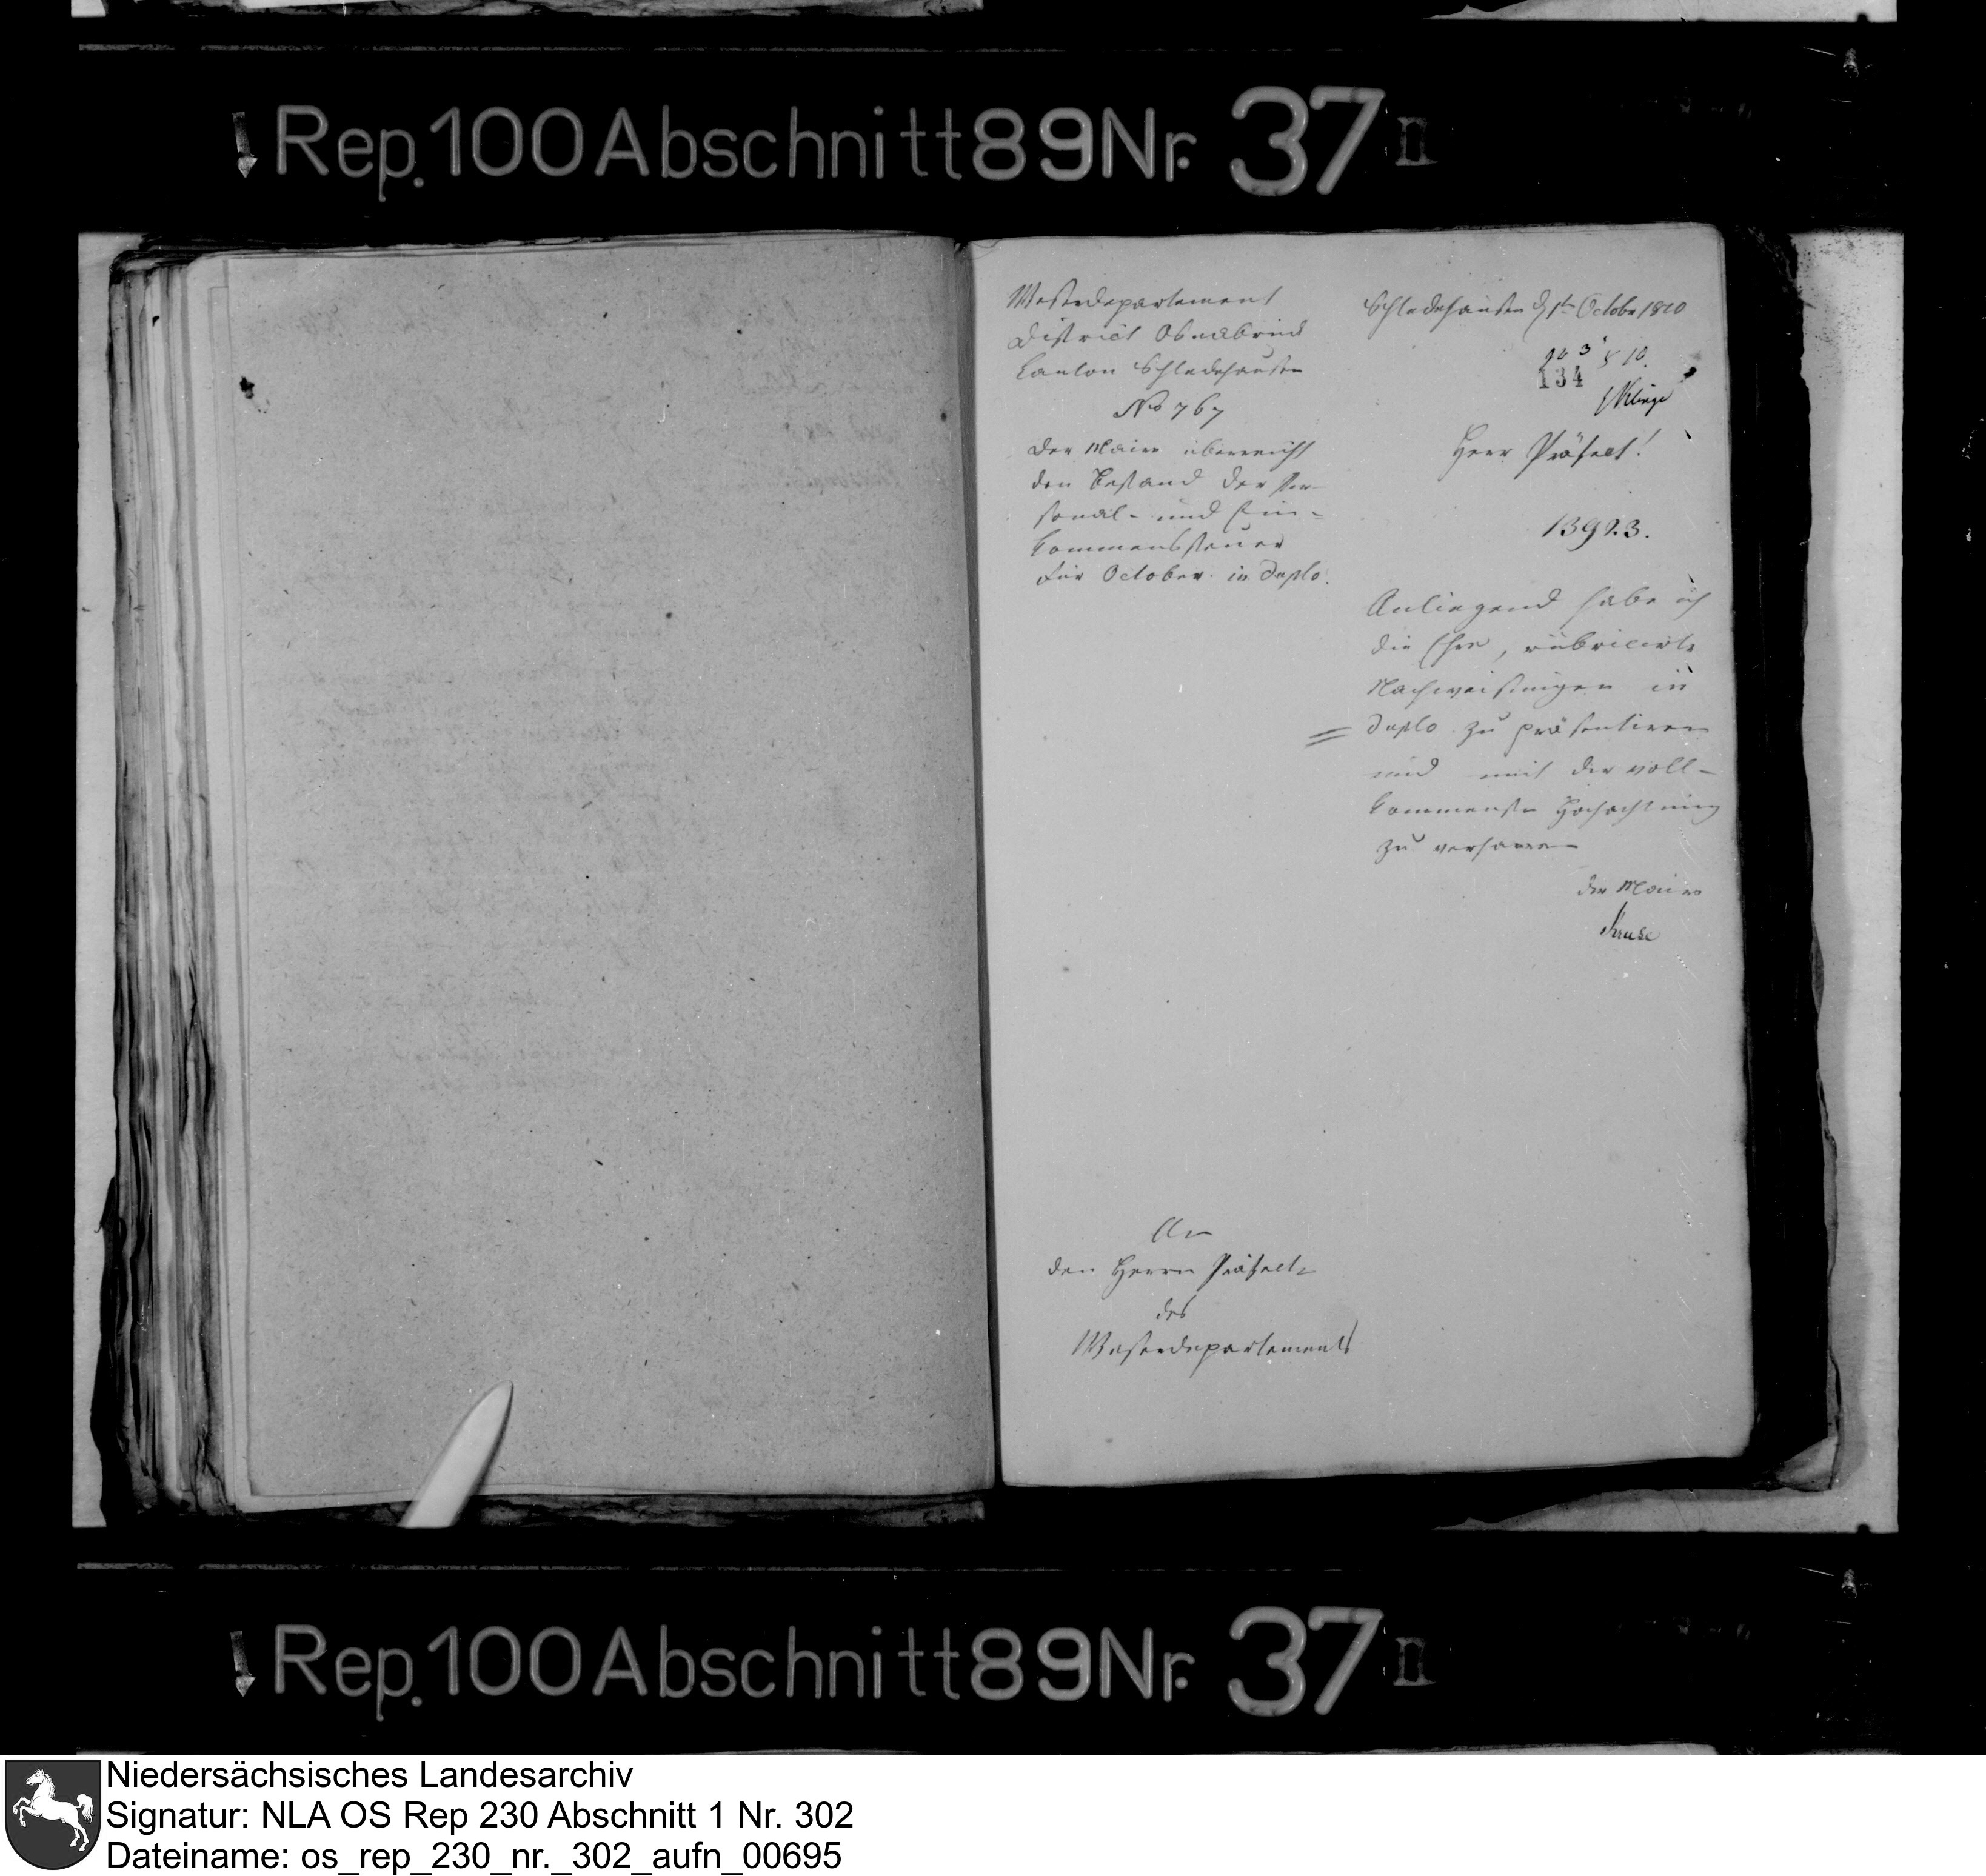 Rep. 100 Abschnitt 89 Nr. 37 II
Weserdepartement
District Osnabrück
Canton Schledehausen
No 767
Der Maire überreicht
den Bestand der Per-
sonal- und Ein-
kommensteuer
für October in duplo.
Schledehausen d 1t October 1810
134
Herr Präfect!
13923.
Anliegend habe ich
die Ehre, rubricirte
Nachweisungen in
duplo zu präsentiren
und mit der voll-
kommensten Hochachtung
zu verharren
der Maire
Kruse
An
den Herrn Präfecten
des
Weserdepartements
Rep. 100 Abschnitt 89 Nr. 37 II
Niedersächsisches Landesarchiv
Signatur: NLA OS Rep 230 Abschnitt 1 Nr. 302
Dateiname: os_rep_230_nr._302_aufn_00695